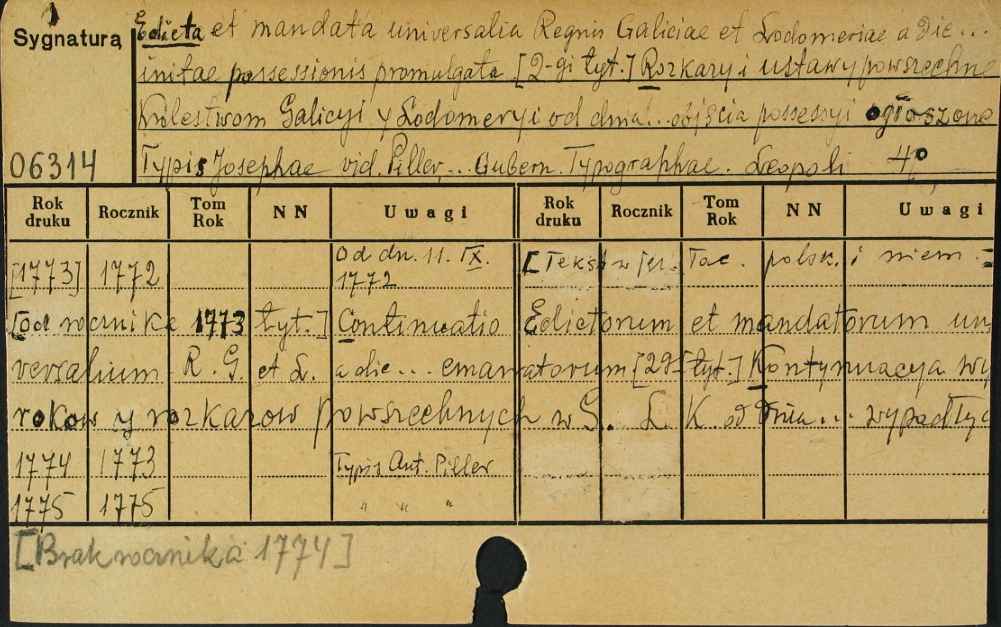 Sygnatura
Edicta et mandata universalia Regnis Galiciae et Lodomeriae a die...
initae possessionis promulgata [2-gi tyt.] Rozkazy i ustawy powszechne
Królestwom Galicyi y Lodomeryi od dnia... objęcia possessyi ogłoszone
06314 Typis Josephae vid. Piller... Gubern. Typographae. Leopoli 4°
Rok druku Rocznik Tom Rok NN Uwagi Rok druku Rocznik Tom Rok NN Uwagi
Od dn. 11. IX.
[1773] 1772 1772 [Tekst w jęz. łac. polsk. i niem.
[od rocznika 1773 tyt.] Continuatio Edictorum et mandatorum uni
versalium R. G. et L. a die... emanatorum [2gi tyt.] Kontynuacya wy
rokow y rozkazow powszechnych w G. L. K. od dnia... wypadłyc
1774 1773 Typis Ant. Piller
1775 1775 " " "
[Brak rocznika 1774]